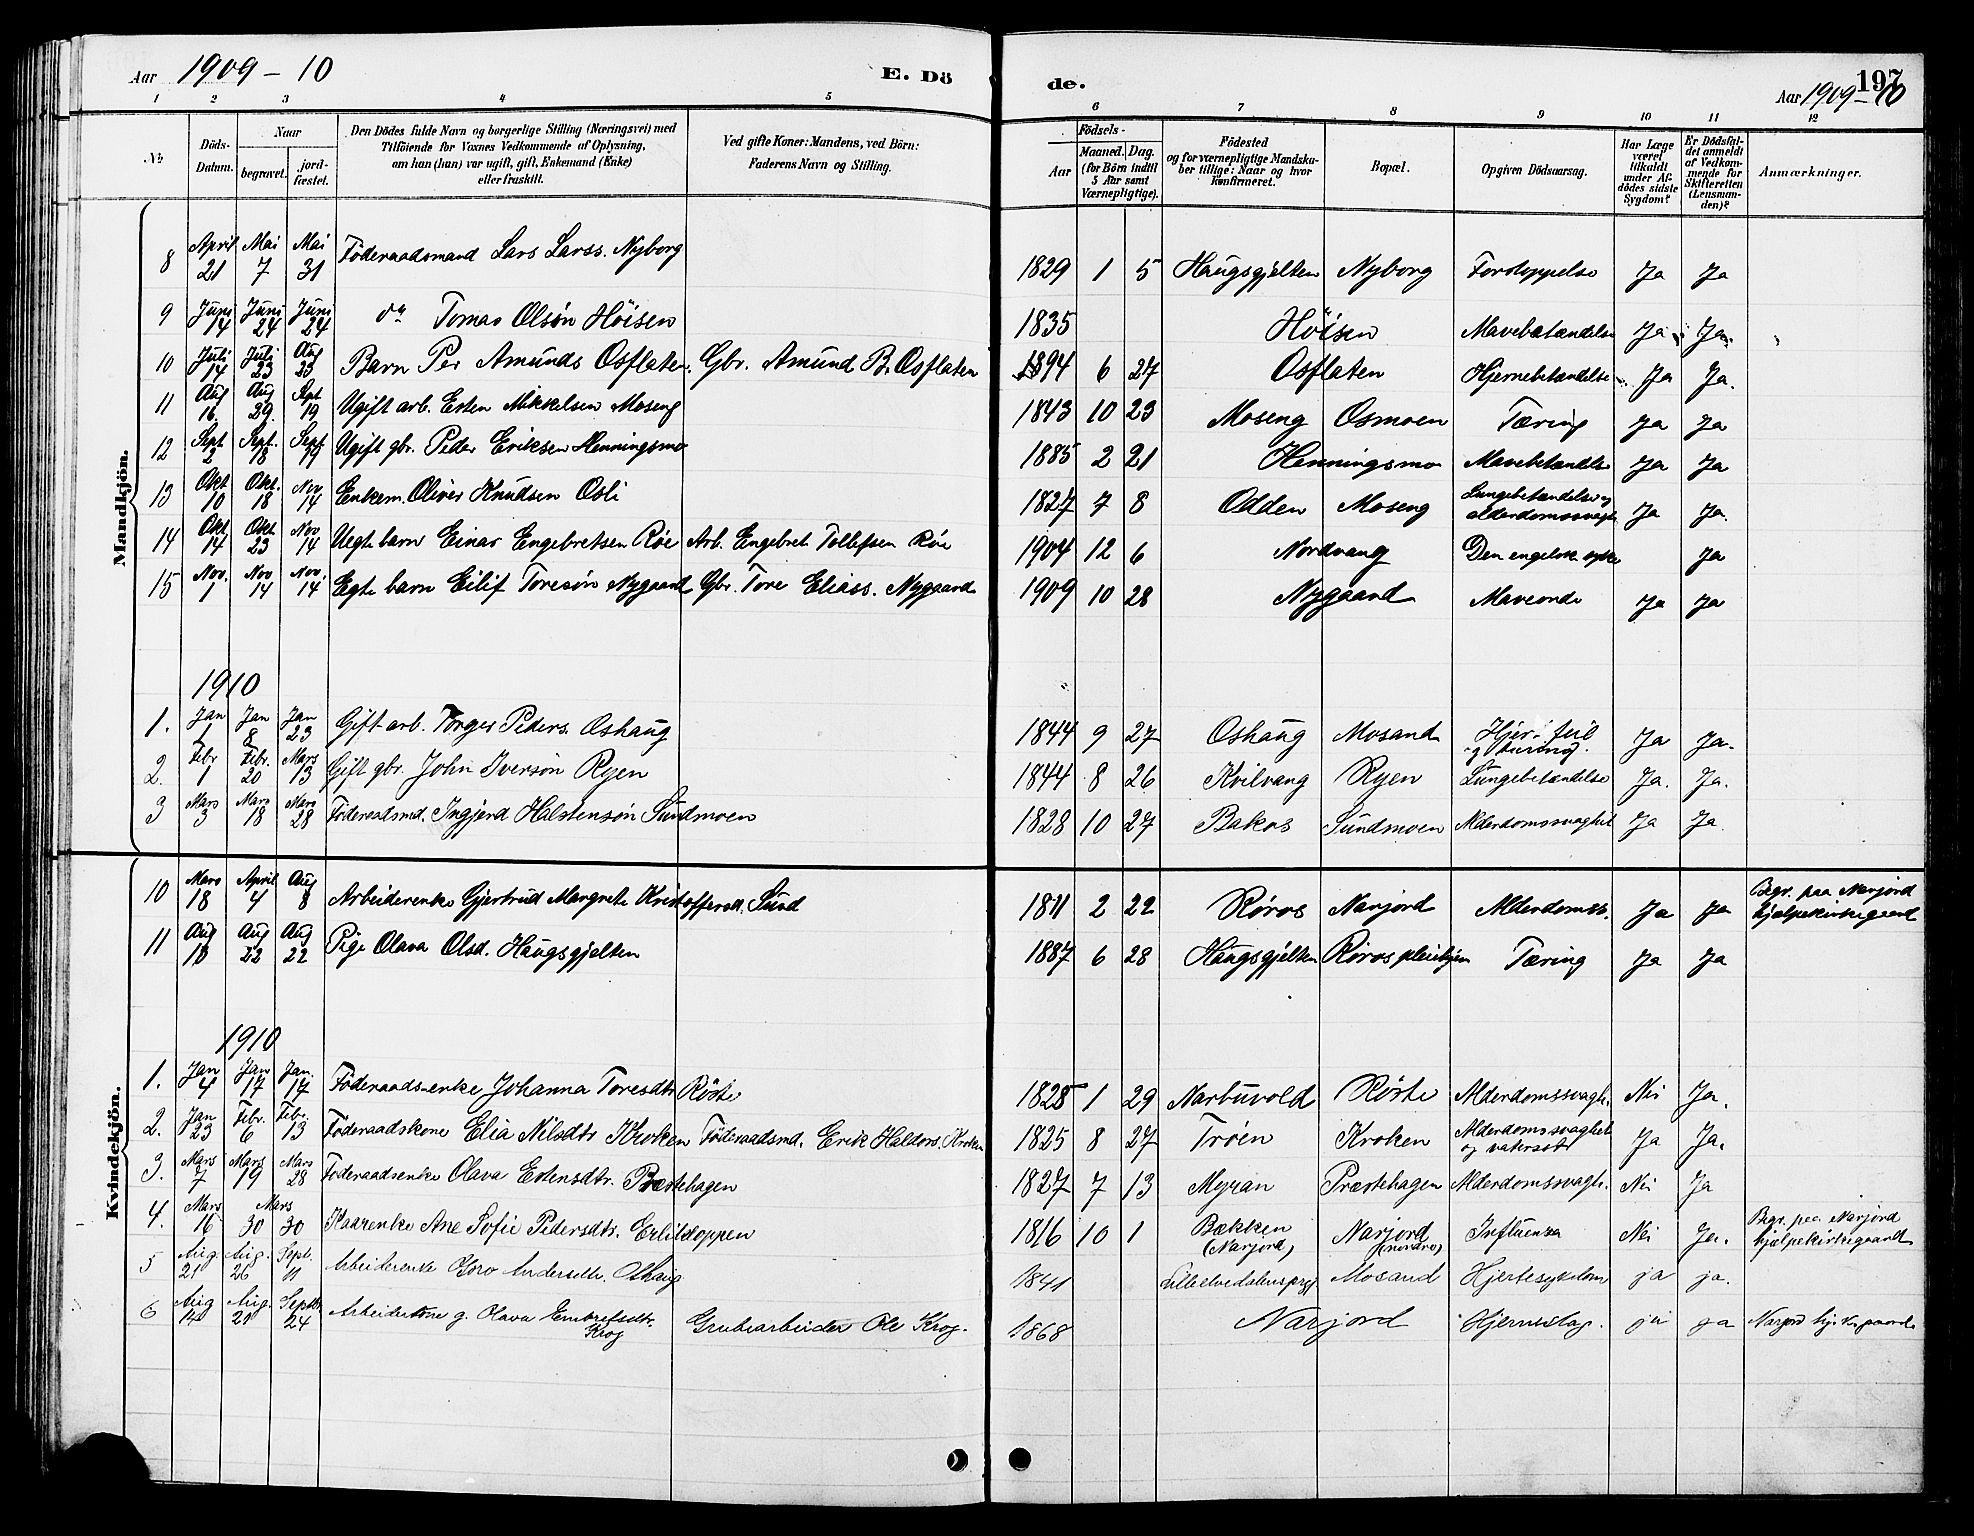 Aar 1909 – 10 E. Dö de. Aar 1909 – 10 197
1 2 3 4 5 6 7 8 9 10 11 12
No Döds-Datum. Naar begravet. jordfæstet. Den Dödes fulde Navn og borgerlige Stilling (Næringsvei) med Tilföiende for Voxnes Vedkommende af Oplysning, om han (hun) var ugift, gift, Enkemand (Enke) eller fraskilt. Ved gifte Koner: Mandens, ved Börn: Faderens Navn og Stilling. Födsels- Aar Maaned. Dag. (for Börn indtil 5 Aar samt Værnepligtige). Födested og for værnepligtige Mandskaber tillige: Naar og hvor Konfirmeret. Bopæl. Opgiven Dödsaarsag. Har Læge været tilkaldt under Afdödes sidste Sygdom? Er Dödsfaldet anmeldt af Vedkommende for Skifteretten (Lensmanden)? Anmærkninger.
Mandkjön.
8 April 21 Mai 7 Mai 31 Föderaadsmand Lars Larss. Nyborg 1829 1 5 Haugsgjelten Nyborg Forstoppelse Ja Ja
9 Juni 14 Juni 24 Juni 24 do Tomas Olsön Höisen 1835 Höisen Mavebetændelse Ja Ja
10 Juli 14 Juli 23 Aug 23 Barn Per Amunds Osflaten. Gbr. Amund B. Osflaten 1894 6 27 Osflaten Hjernebetændelse Ja Ja.
11 Aug 16 Aug 29 Sept 19 Ugift arb. Esten Mikkelsen Moseng 1843 10 23 Moseng Osmoen Tæring Ja Ja
12 Sept 2 Sept. 18 Sept 19 Ugift gbr. Peder Eriksen Henningsmo 1885 2 21 Henningsmo Mavebetændelse Ja Ja
13 Okt 10 Okt. 18 Nov 14 Enkem. Oliver Knudsen Osli 1827 7 8 Odden Moseng Lungebetændelse og alderdomssvagh. Ja Ja.
14 Okt 14 Okt 23 Nov 14 Uegte barn Einar Engebretsen Röe Arb. Engebret Tollefsen Röe 1904 12 6 Nordvang Den engelske syke Ja
15 Nov. 1 Nov 14 Nov. 14 Egte barn Eilif Toresön Nygaard Gbr. Tore Eliass. Nygaard 1909 10 28 Nygaard Maveonde Ja Ja
1910
1. Jan 1 Jan 8 Jan 23 Gift arb. Torger Peders. Oshaug 1844 9 27 Oshaug Mosand Hjertefeil og tæring. Ja Ja.
2. Febr 1 Febr. 20 Mars 13 Gift gbr. John Iversön Ryen 1844 8 26 Kvilvang Ryen Lungebetændelse Ja. Ja.
3 Mars 3 Mars 18 Mars 28 Föderaadsmd. Ingjerd Halstensön Sundmoen 1828 10 27 Bakos Sundmoen Alderdomssvaghet Ja Ja
Kvindekjön.
10 Mars 18 April 4 Aug 8 Arbeiderenke Gjertrud Margrete Kristoffersd. Sund 1811 2 22 Röros Narjord Alderdomss. Ja Ja Begr. paa Narjord hjælpekirkegaard
11 Aug 18 Aug 22 Aug 22 Pige Olava Olsd. Haugsgjelten 1887 6 28 Haugsgjelten Röros pleiehjem Tæring Ja Ja
1910
1. Jan 4 Jan 17 Jan. 17 Föderaadsenke Johanna Toresdtr Röste 1828 1 29 Narbuvold Röste Alderdomssvagh. Nei Ja.
2. Jan 23 Febr. 6 Febr. 13 Föderaadskone Elia Nilsdtr Kroken Föderaadsmd. Erik Haldors. Kroken 1825 8 27 Tröen Kroken Alderdomssvaghet og vatersot Ja Ja.
3. Mars 7 Mars 19 Mars 28 Föderaadsenke Olava Estensdtr. Præstehagen 1827 7 13 Myran Præstehagen Alderdomssvagh. Nei Ja
4. Mars 16 Mars 30 30 Kaarenke Ane Sofie Pedersdtr. Erlitoppen 1816 10 1 Bækken (Narjord) Narjord (nordre) Influensa Nei Ja. Begr. paa Narjord hjælpekirkegaard
5 Aug. 21 Aug. 26 Sept. 11 Arbeiderenke Goro Andersdtr. Oshaug 1841 Lilleelvedalens prgj Mosand Hjertesykdom ja ja.
6 Aug 14 Aug. 21 Septbr. 24 Arbeiderkone g. Olava Embretsdtr. Krog Grubearbeider Ole Krog. 1868 Narjord Hjerneslag. ja ja Narjord hj. k. gaard.